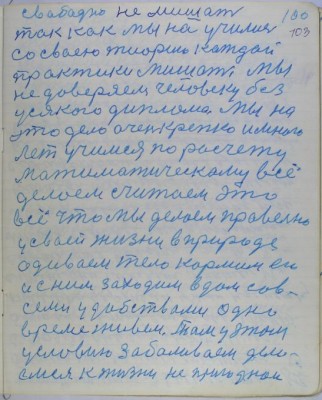 свабадно не мишат 180
103
так как мы научилис
со своею тиорию каждай
практики мишать мы
не доверяем человеку без
усякого диплома мы на
это дело очен крепко имного
лет учимся по росчету
матиматическому всё
делоем считаем это
всё что мы делоем правелно
у своей жизни в природе
одиваем тело кормим ею
и с ним заходим в дом сов-
семи удобствами одно
време живем. там у этом
условию заболиваем дело-
емся к жизни не пригоднои